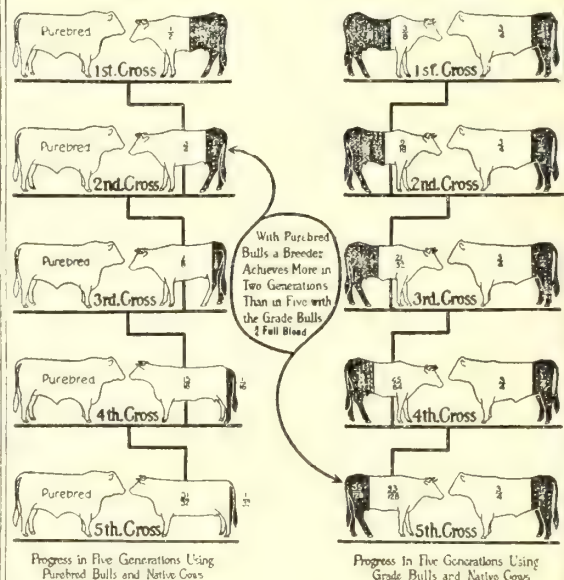 Purebred
1/2
1st. Cross
Purebred
3/4
2nd. Cross
Purebred
3rd. Cross
Purebred
4th. Cross
Purebred
31/32
5th. Cross
Progress in Five Generations Using
Purebred Bulls and Native Cows
With Purebred
Bulls a Breeder
Achieves More in
Two Generations
Than in Five with
the Grade Bulls
3/4 Full Blood
3/8
3/4
1st. Cross
3/4
2nd. Cross
21/32
3/4
3rd. Cross
3/4
4th. Cross
93/128
3/4
5th. Cross
Progress in Five Generations Using
Grade Bulls and Native Cows